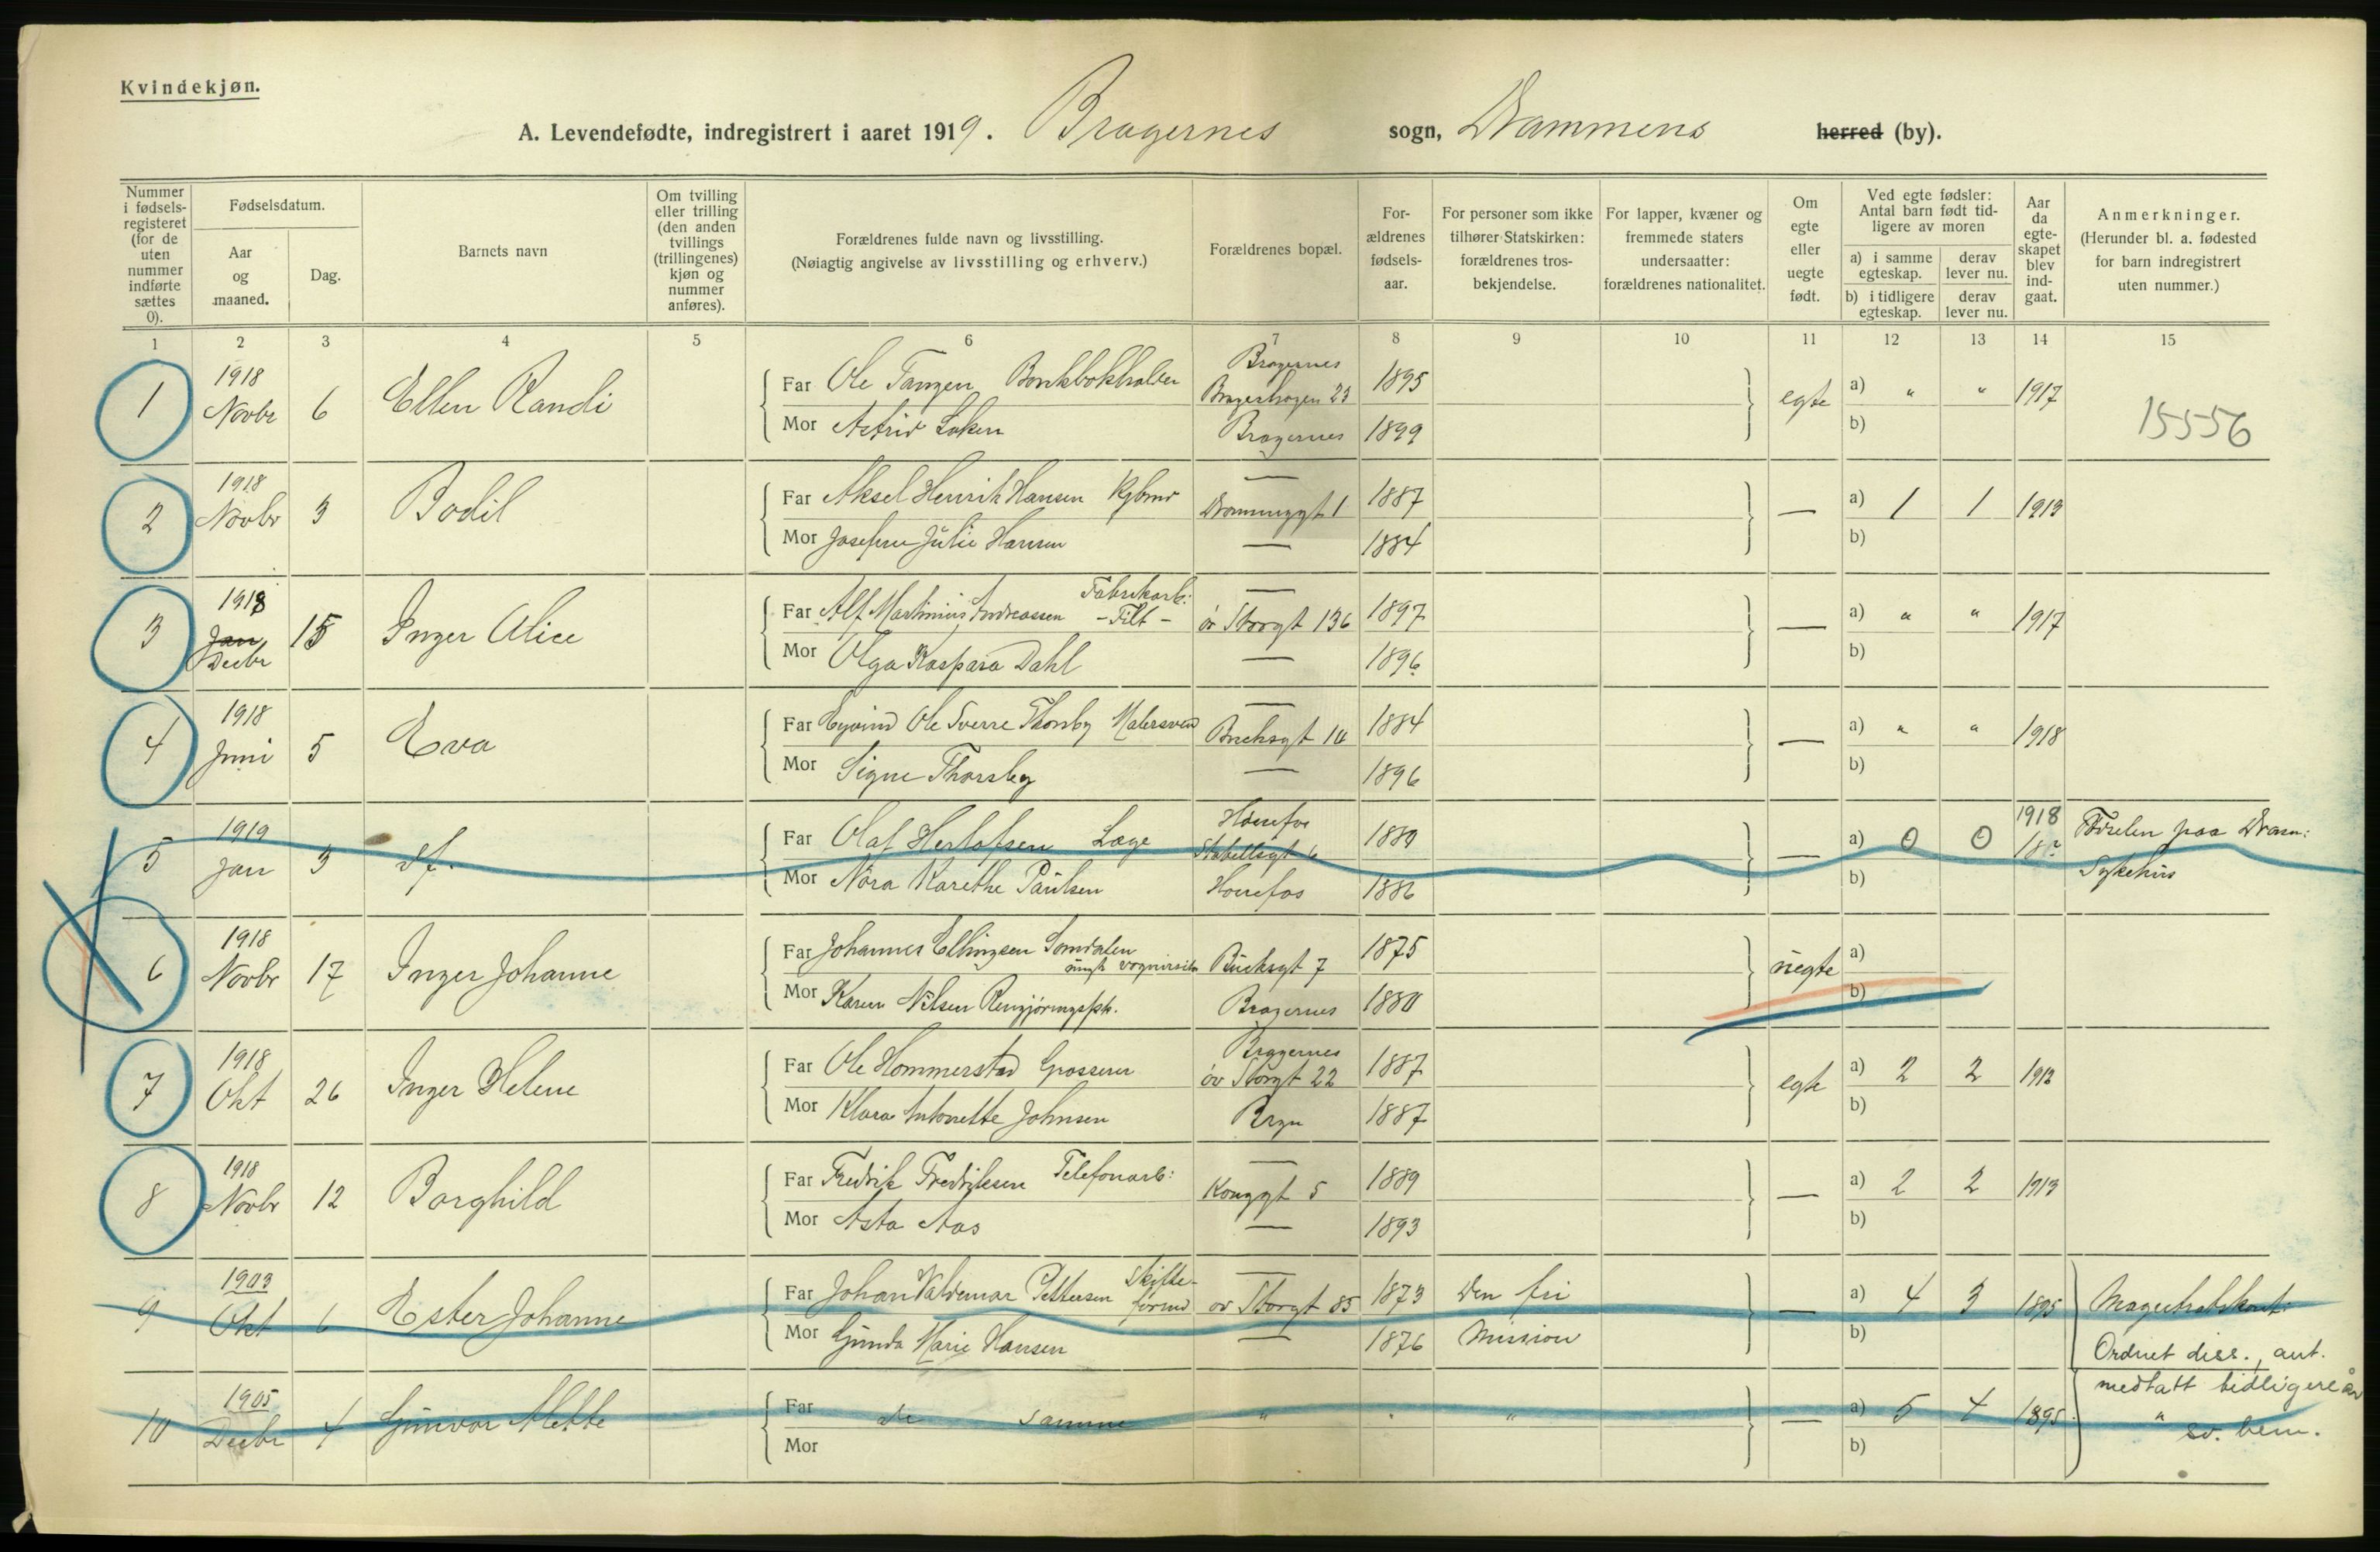 Kvindekjøn.
A. Levendefødte, indregistrert i aaret 1919. Bragernes sogn, Drammens herred (by).
Nummer i fødsels-registeret (for de uten nummer indførte sættes 0).
Fødselsdatum.
Aar og maaned.
Dag.
Barnets navn
Om tvilling eller trilling (den anden tvillings (trillingenes) kjøn og nummer anføres).
Forældrenes fulde navn og livsstilling.
(Nøiagtig angivelse av livsstilling og erhverv.)
Forældrenes bopæl.
For-ældrenes fødsels-aar.
For personer som ikke tilhører Statskirken: forældrenes tros-bekjendelse.
For lapper, kvæner og fremmede staters undersaatter: forældrenes nationalitet.
Om egte eller uegte født.
Ved egte fødsler: Antal barn født tid-ligere av moren
a) i samme egteskap.
derav lever nu.
b) i tidligere egteskap.
derav lever nu.
Aar da egte-skapet blev ind-gaat.
Anmerkninger.
(Herunder bl. a. fødested for barn indregistrert uten nummer.)
1 2 3 4 5 6 7 8 9 10 11 12 13 14 15
1 1918 Novbr 6 Ellen Randi Far Ole Tangen Bankbokholder Bragernes Brageshagen 23 1895 egte a) " " 1917
Mor Astrid Løken Bragernes 1899 b) 15556
2 1918 Novbr 3 Bodil Far Aksel Henrik Hansen Kjbmd — Drammensgt 1 1887 — a) 1 1 1913
Mor Josefine Julie Hansen — 1884 b)
3 1918 Jan Decbr 15 Inger Alice Far Alf Martinius Andreassen Fabrikarb: - Filt - — øv Storgt 136 1897 — a) " " 1917
Mor Olga Kaspara Dahl — 1896 b)
4 1918 Juni 5 Eva Far Eyvind Ole Sverre Thorsby Malersvend — Buchsgt 14 1884 — a) " " 1918
Mor Signe Thorsby — 1896 b)
5 1919 Jan 3 Far Olaf Herlofsen Læge Hønefos Stabellsgt 6 1880 — a) 0 0 1918 Fødselen paa Dram:
Mor Nora Karethe Paulsen Hønefos 1886 b) Sykehus
6 1918 Novbr 17 Inger Johanne Far Johannes Ellingsen Somdalen Buchsgt 7 1875 uegte a)
Mor Karen Nilsen Rengjøringspk. Bragernes 1880 b)
7 1918 Okt 26 Inger Helene Far Ole Hommerstad Grosserer Bragernes øv Storgt 22 1887 egte a) 2 2 1912
Mor Klara Antonette Johnsen Bryn 1887 b)
8 1918 Novbr 12 Borghild Far Fredrik Fredriksen Telefonarb: — Konggt 5 1889 — a) 2 2 1913
Mor Asta Aas — 1893 b)
9 1903 Okt 6 Ester Johanne Far Johan Valdemar Pettersen Skifte-formd — øv Storgt 85 1873 Den fri — a) 4 3 1895 Magistratskont:
Mor Gunda Marie Hansen — 1876 Mission b) Ordnet diss., ant.
medtatt tidligere år
10 1905 Decbr 4 Gunvor Alette Far de samme " " " — a) 5 4 1895 " sv. bem.
Mor b)